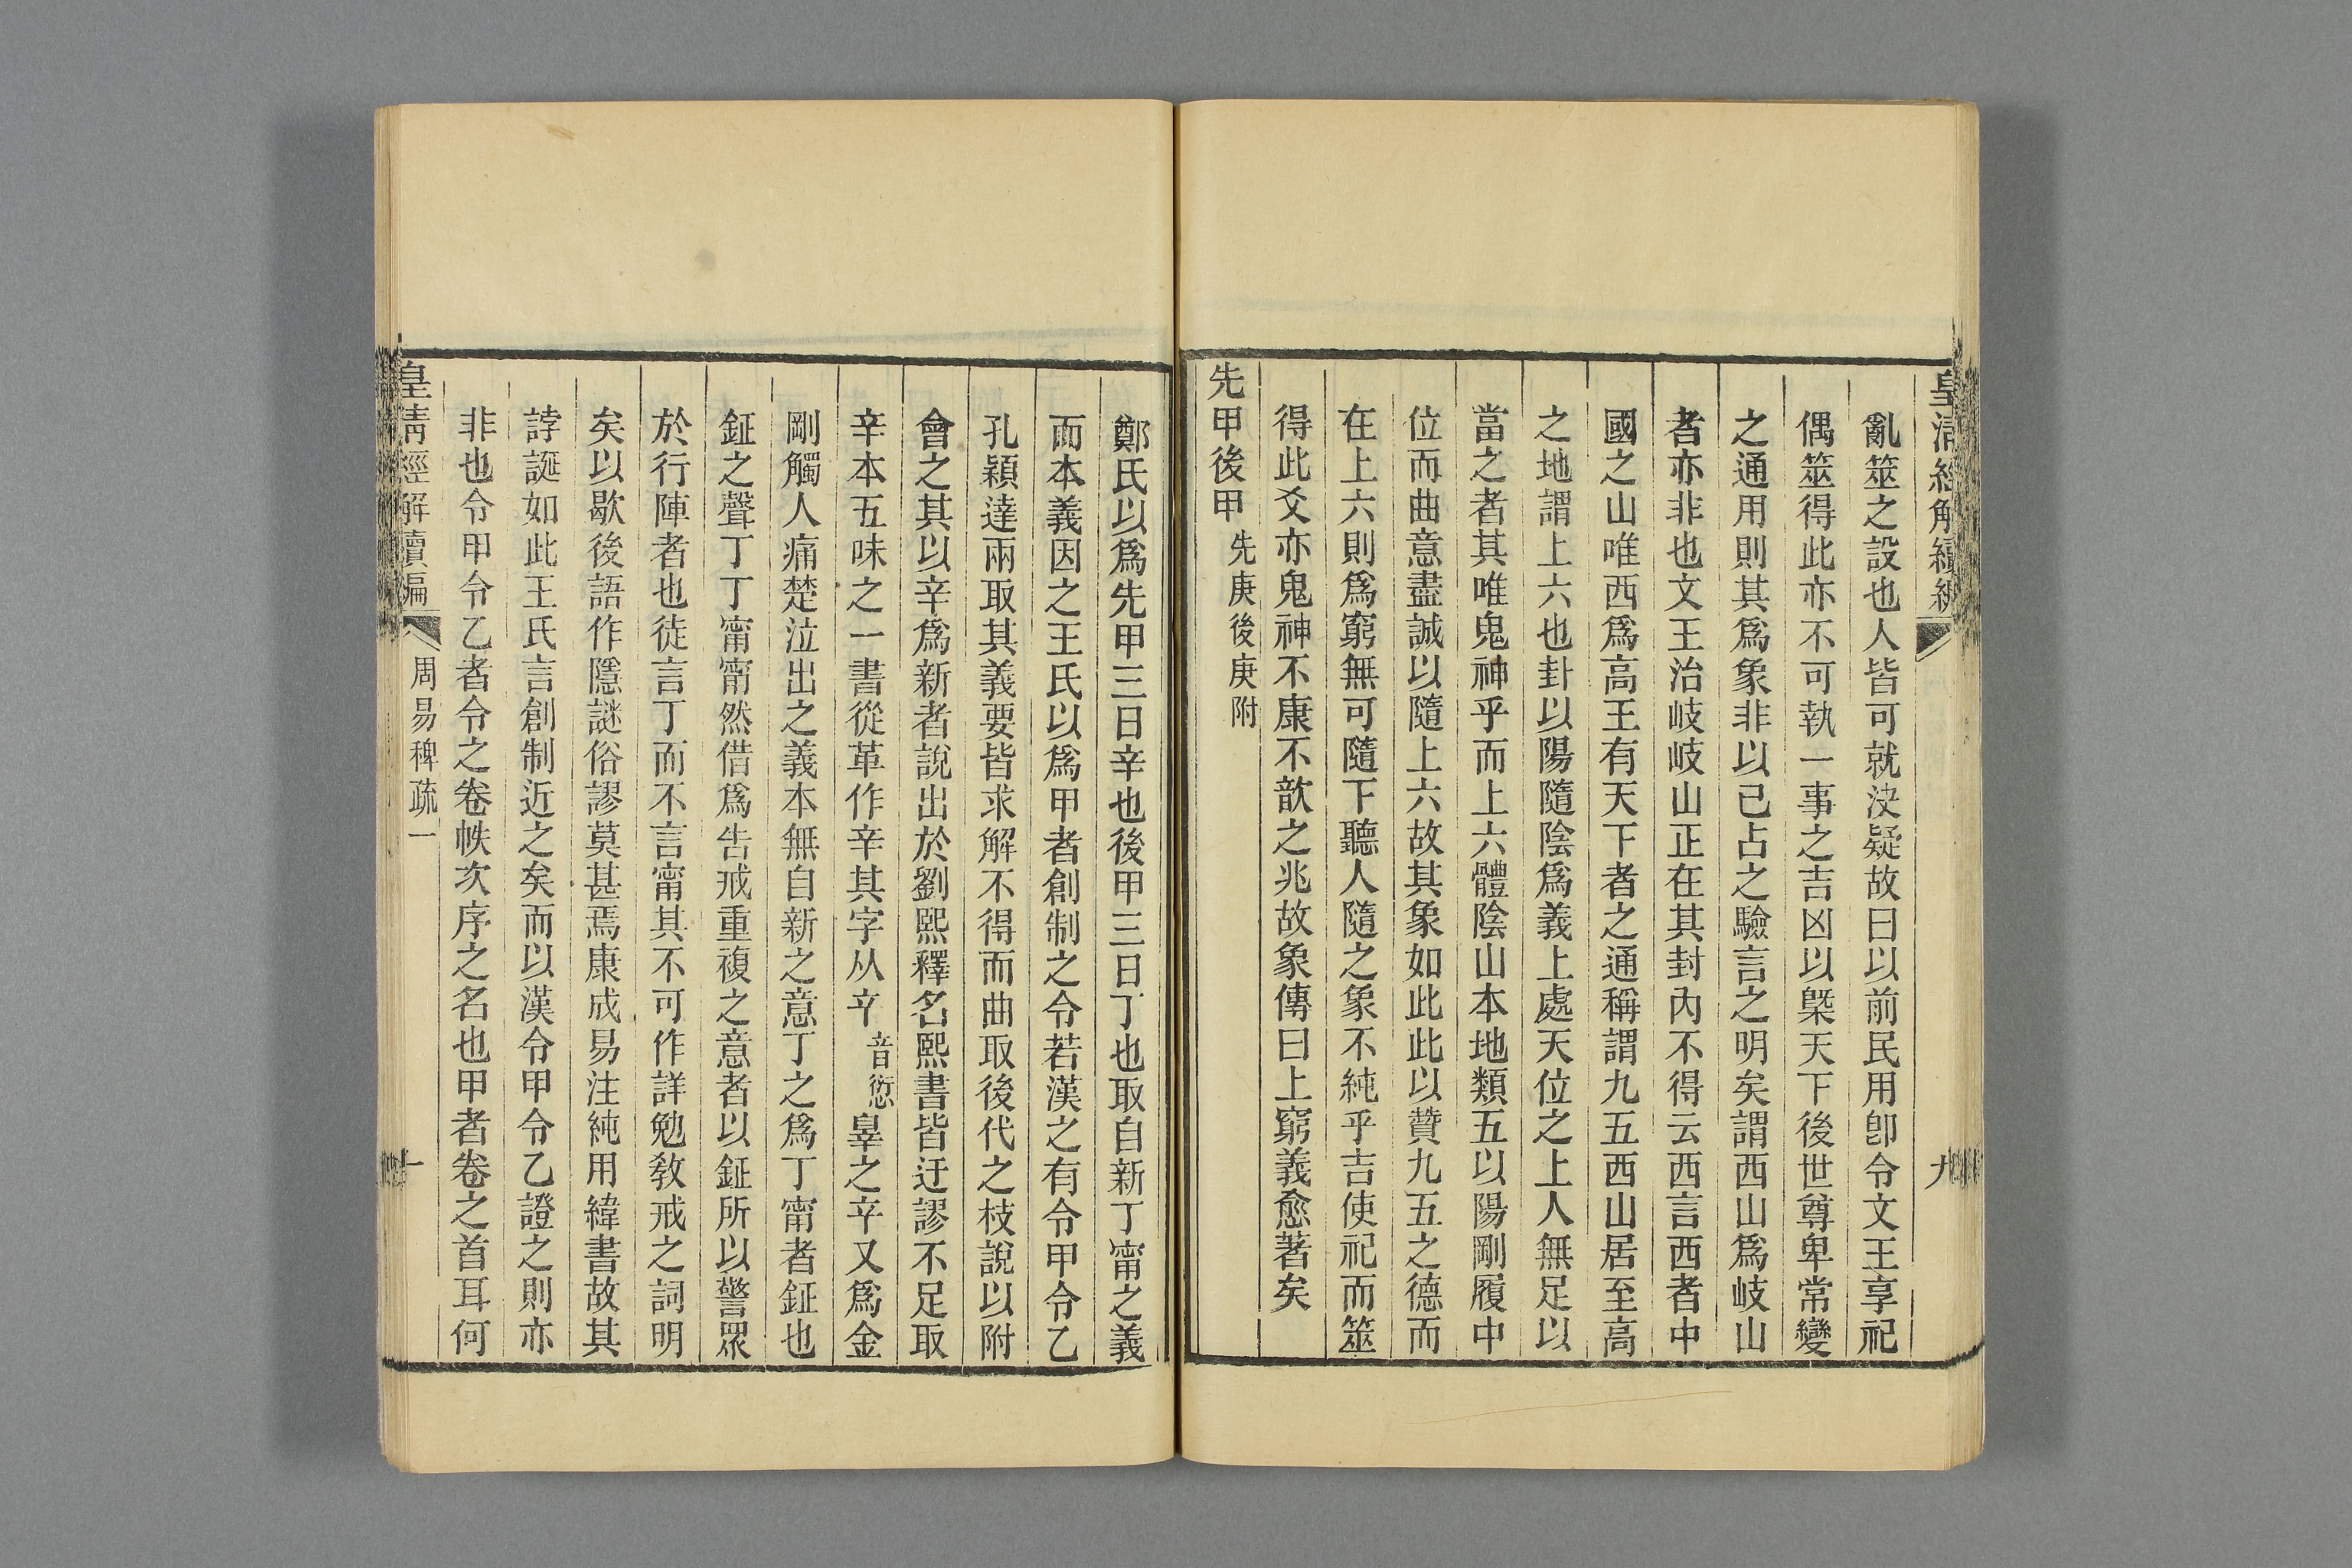 皇清經解續編
九
亂筮之設也人皆可就決疑故曰以前民用卽令文王享祀
偶筮得此亦不可執一事之吉凶以槩天下後世尊卑常變
之通用則其爲象非以已占之驗言之明矣謂西山爲岐山
者亦非也文王治岐岐山正在其封內不得云西言西者中
國之山唯西爲高王有天下者之通稱謂九五西山居至高
之地謂上六也卦以陽隨陰爲義上處天位之上人無足以
當之者其唯鬼神乎而上六體陰山本地類五以陽剛履中
位而曲意盡誠以隨上六故其象如此此以贊九五之德而
在上六則爲窮無可隨下聽人隨之象不純乎吉使祀而筮
得此爻亦鬼神不康不歆之兆故象傳曰上窮義愈著矣
先甲後甲 先庚後庚附
鄭氏以爲先甲三日辛也後甲三日丁也取自新丁甯之義
而本義因之王氏以爲甲者創制之令若漢之有令甲令乙
孔穎達兩取其義要皆求解不得而曲取後代之枝說以附
會之其以辛爲新者說出於劉熙釋名熙書皆迂謬不足取
辛本五味之一書從革作辛其字从䇂 音愆 辠之䇂又爲金
剛觸人痛楚泣出之義本無自新之意丁之爲丁甯者鉦也
鉦之聲丁丁甯甯然借爲告戒重複之意者以鉦所以警眾
於行陣者也徒言丁而不言甯其不可作詳勉敎戒之詞明
矣以歇後語作隱謎俗謬莫甚焉康成易注純用緯書故其
誖誕如此王氏言創制近之矣而以漢令甲令乙證之則亦
非也令甲令乙者令之卷帙次序之名也甲者卷之首耳何
皇清經解續編
周易稗疏一
十